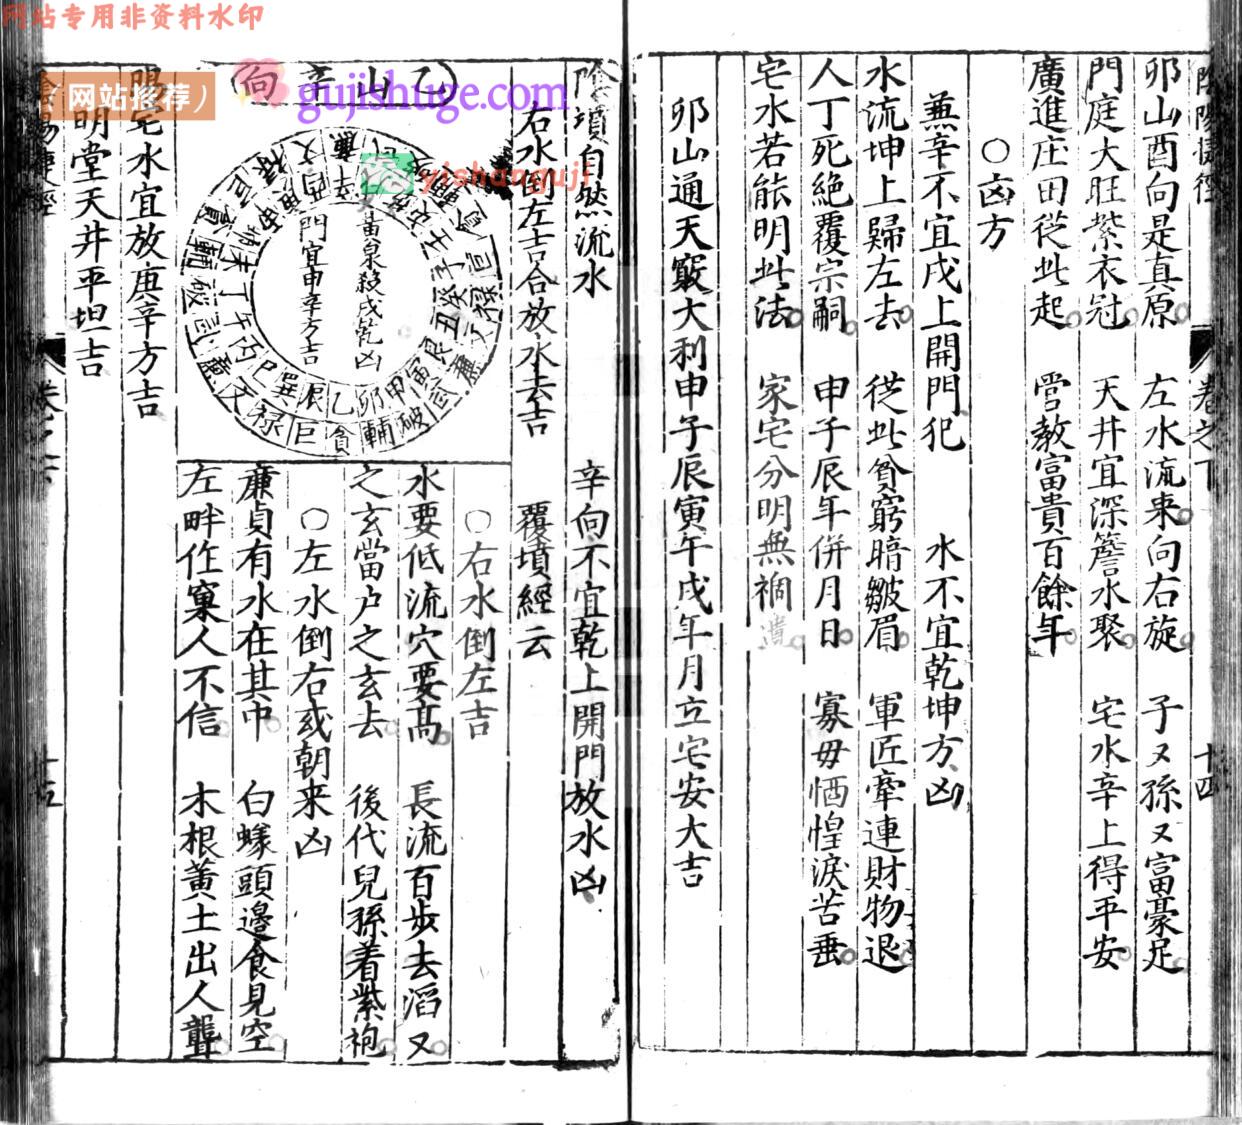 网站专用非资料水印
(网站推荐)
gujishuge.com
yishanguji
卷之下 十四
卯山酉向是真原 左水流來向右旋 子又孫又富豪足
門庭大旺紫衣冠 天井宜深簷水聚 宅水辛上得平安
廣進庄田從此起 管教富貴百餘年
○凶方
兼辛不宜戌上開門犯 水不宜乾坤方凶
水流坤上歸左去 從此貧窮暗皺眉 軍匠牽連財物退
人丁死絕覆宗嗣 申子辰年併月日 寡母恓惶淚苦垂
宅水若能明此法 家宅分明無禍
卯山通天竅大利申子辰寅午戌年月立宅安大吉
陰墳自然流水 辛向不宜乾上開門放水凶
右水倒左吉合放水去吉 覆墳經云
乙山辛向
黃泉殺戌乾凶
門宜申辛方吉
○右水倒左吉
水要低流穴要高 長流百步去滔又
之玄當户之玄去 後代兒孫着紫袍
○左水倒右或朝来凶
廉貞有水在其中 白蟻頭邊食見空
左畔作窠人不信 木根黃土出人聾
陽宅水宜放庚辛方吉
明堂天井平坦吉